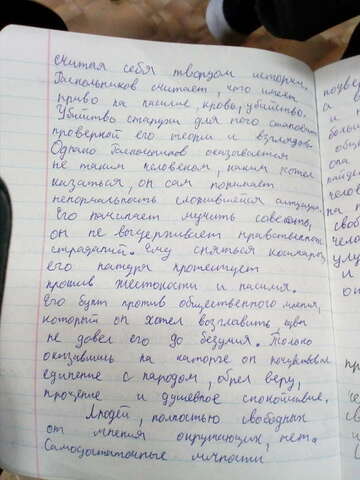 считая себя творцом истории.
Раскольников считает, что имеет
право на насилие, кровь, убийство.
Убийство старухи для него становится
проверкой его теории и взглядов.
Однако Раскольников оказывается
не таким человеком, каким хотел
казаться, он сам понимает
ненормальность сложившейся ситуации.
Его начинает мучить совесть,
он не выдерживает нравственных
страданий. Ему сняться кошмары,
его натура протестует
против жестокости и насилия.
Его бунт против общественного мнения,
который он хотел возглавить, чуть
не довёл его до безумия. Только
оказавшись на каторге он почувствовал
единение с народом, обрел веру,
прощение и душевное спокойствие.
Людей, полностью свободных
от мнения окружающих, нет.
Самодостаточные личности